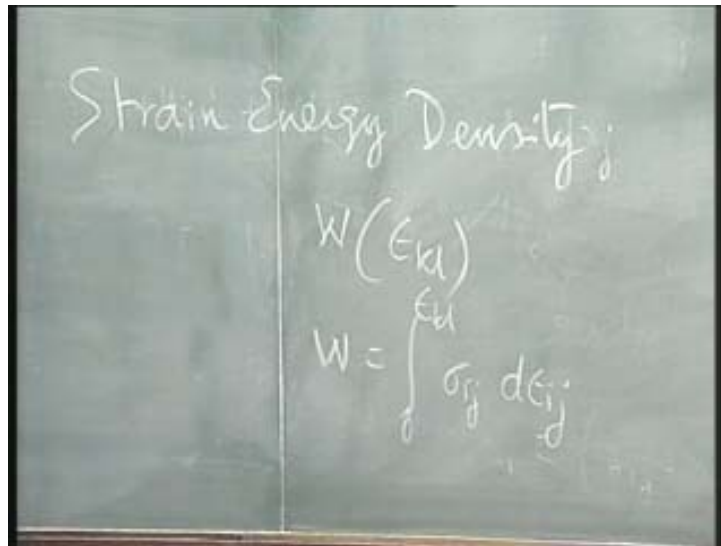 Strain Energy Density;
W(ϵkl)
W = ∫₀^ϵkl σij dϵij